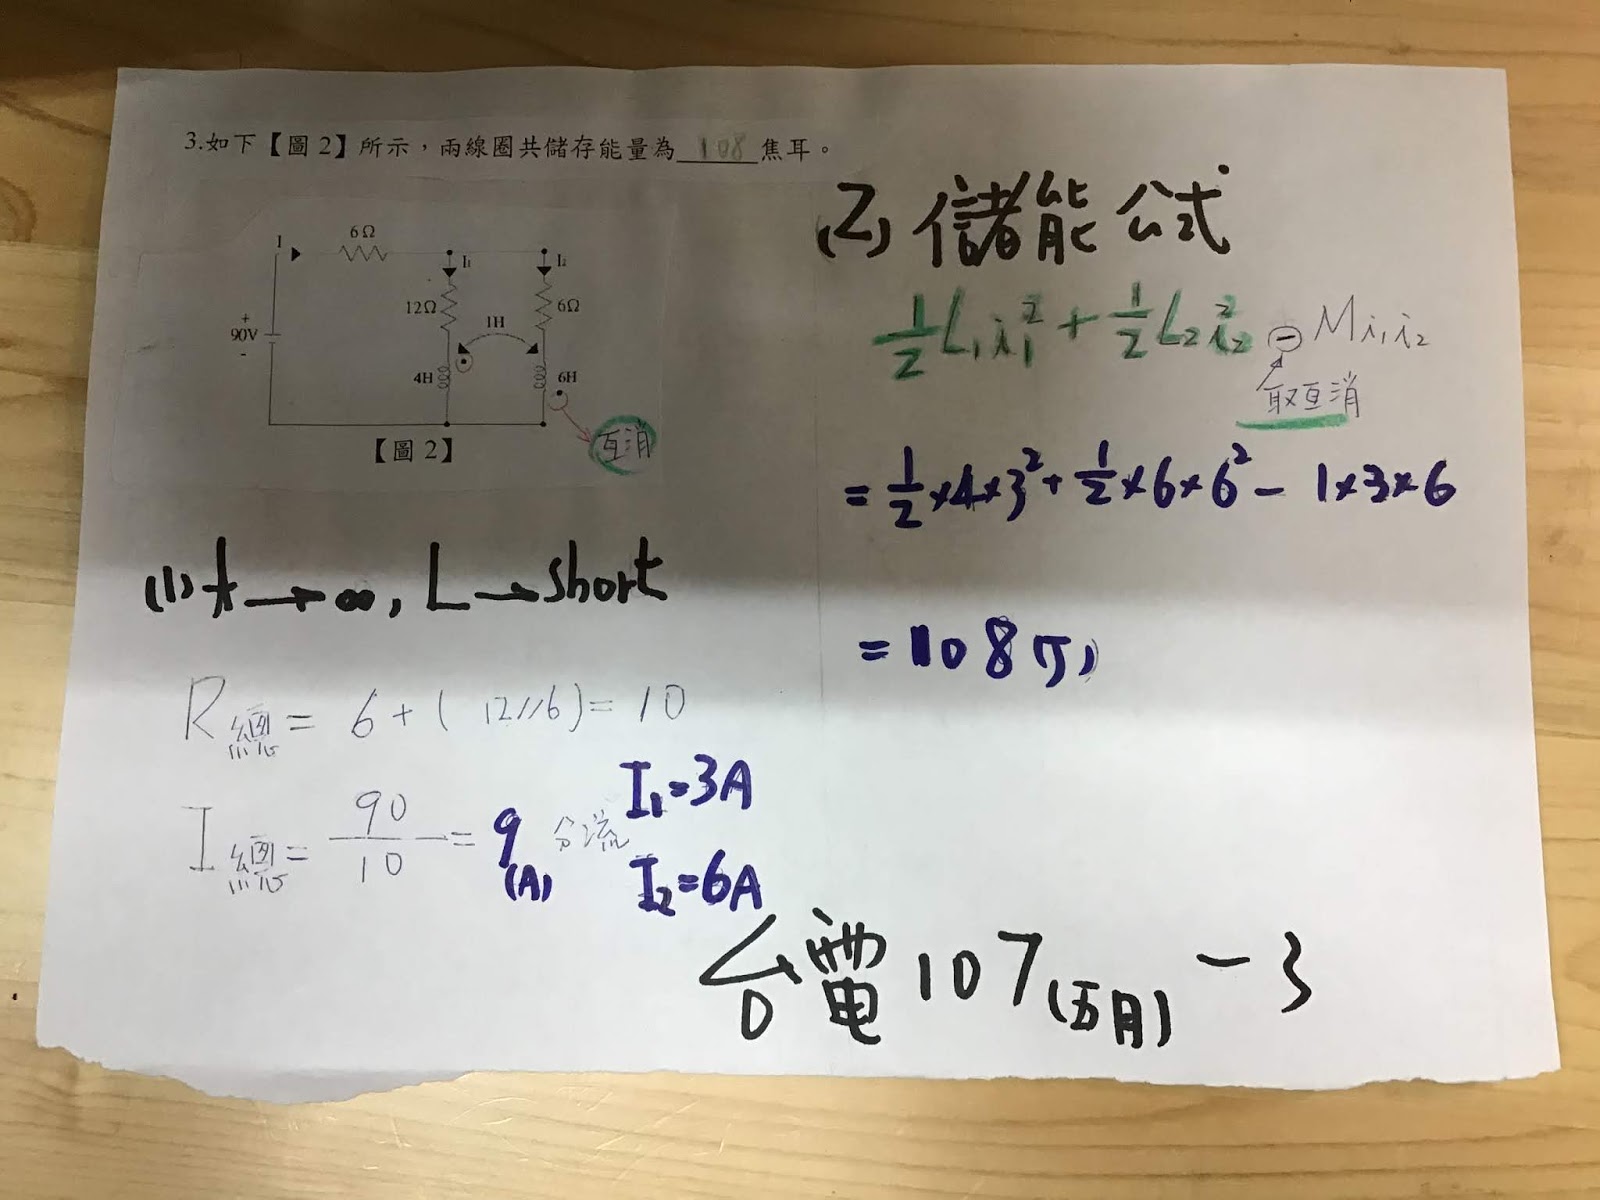 3.如下【圖 2】所示，兩線圈共儲存能量為 108 焦耳。
I
6Ω
I₁
I₂
12Ω
1H
6Ω
+
90V
-
4H
6H
【圖 2】
互消
(1) t→∞, L→short
R總 = 6+( 12//6)= 10
I總= 90/10 = 9(A) 分流
I₁=3A
I₂=6A
(2) 儲能公式
½L₁i₁²+½L₂i₂² ⊖ Mi₁i₂
取互消
= ½×4×3²+½×6×6²- 1×3×6
= 108(J)
台電107(五月)-3